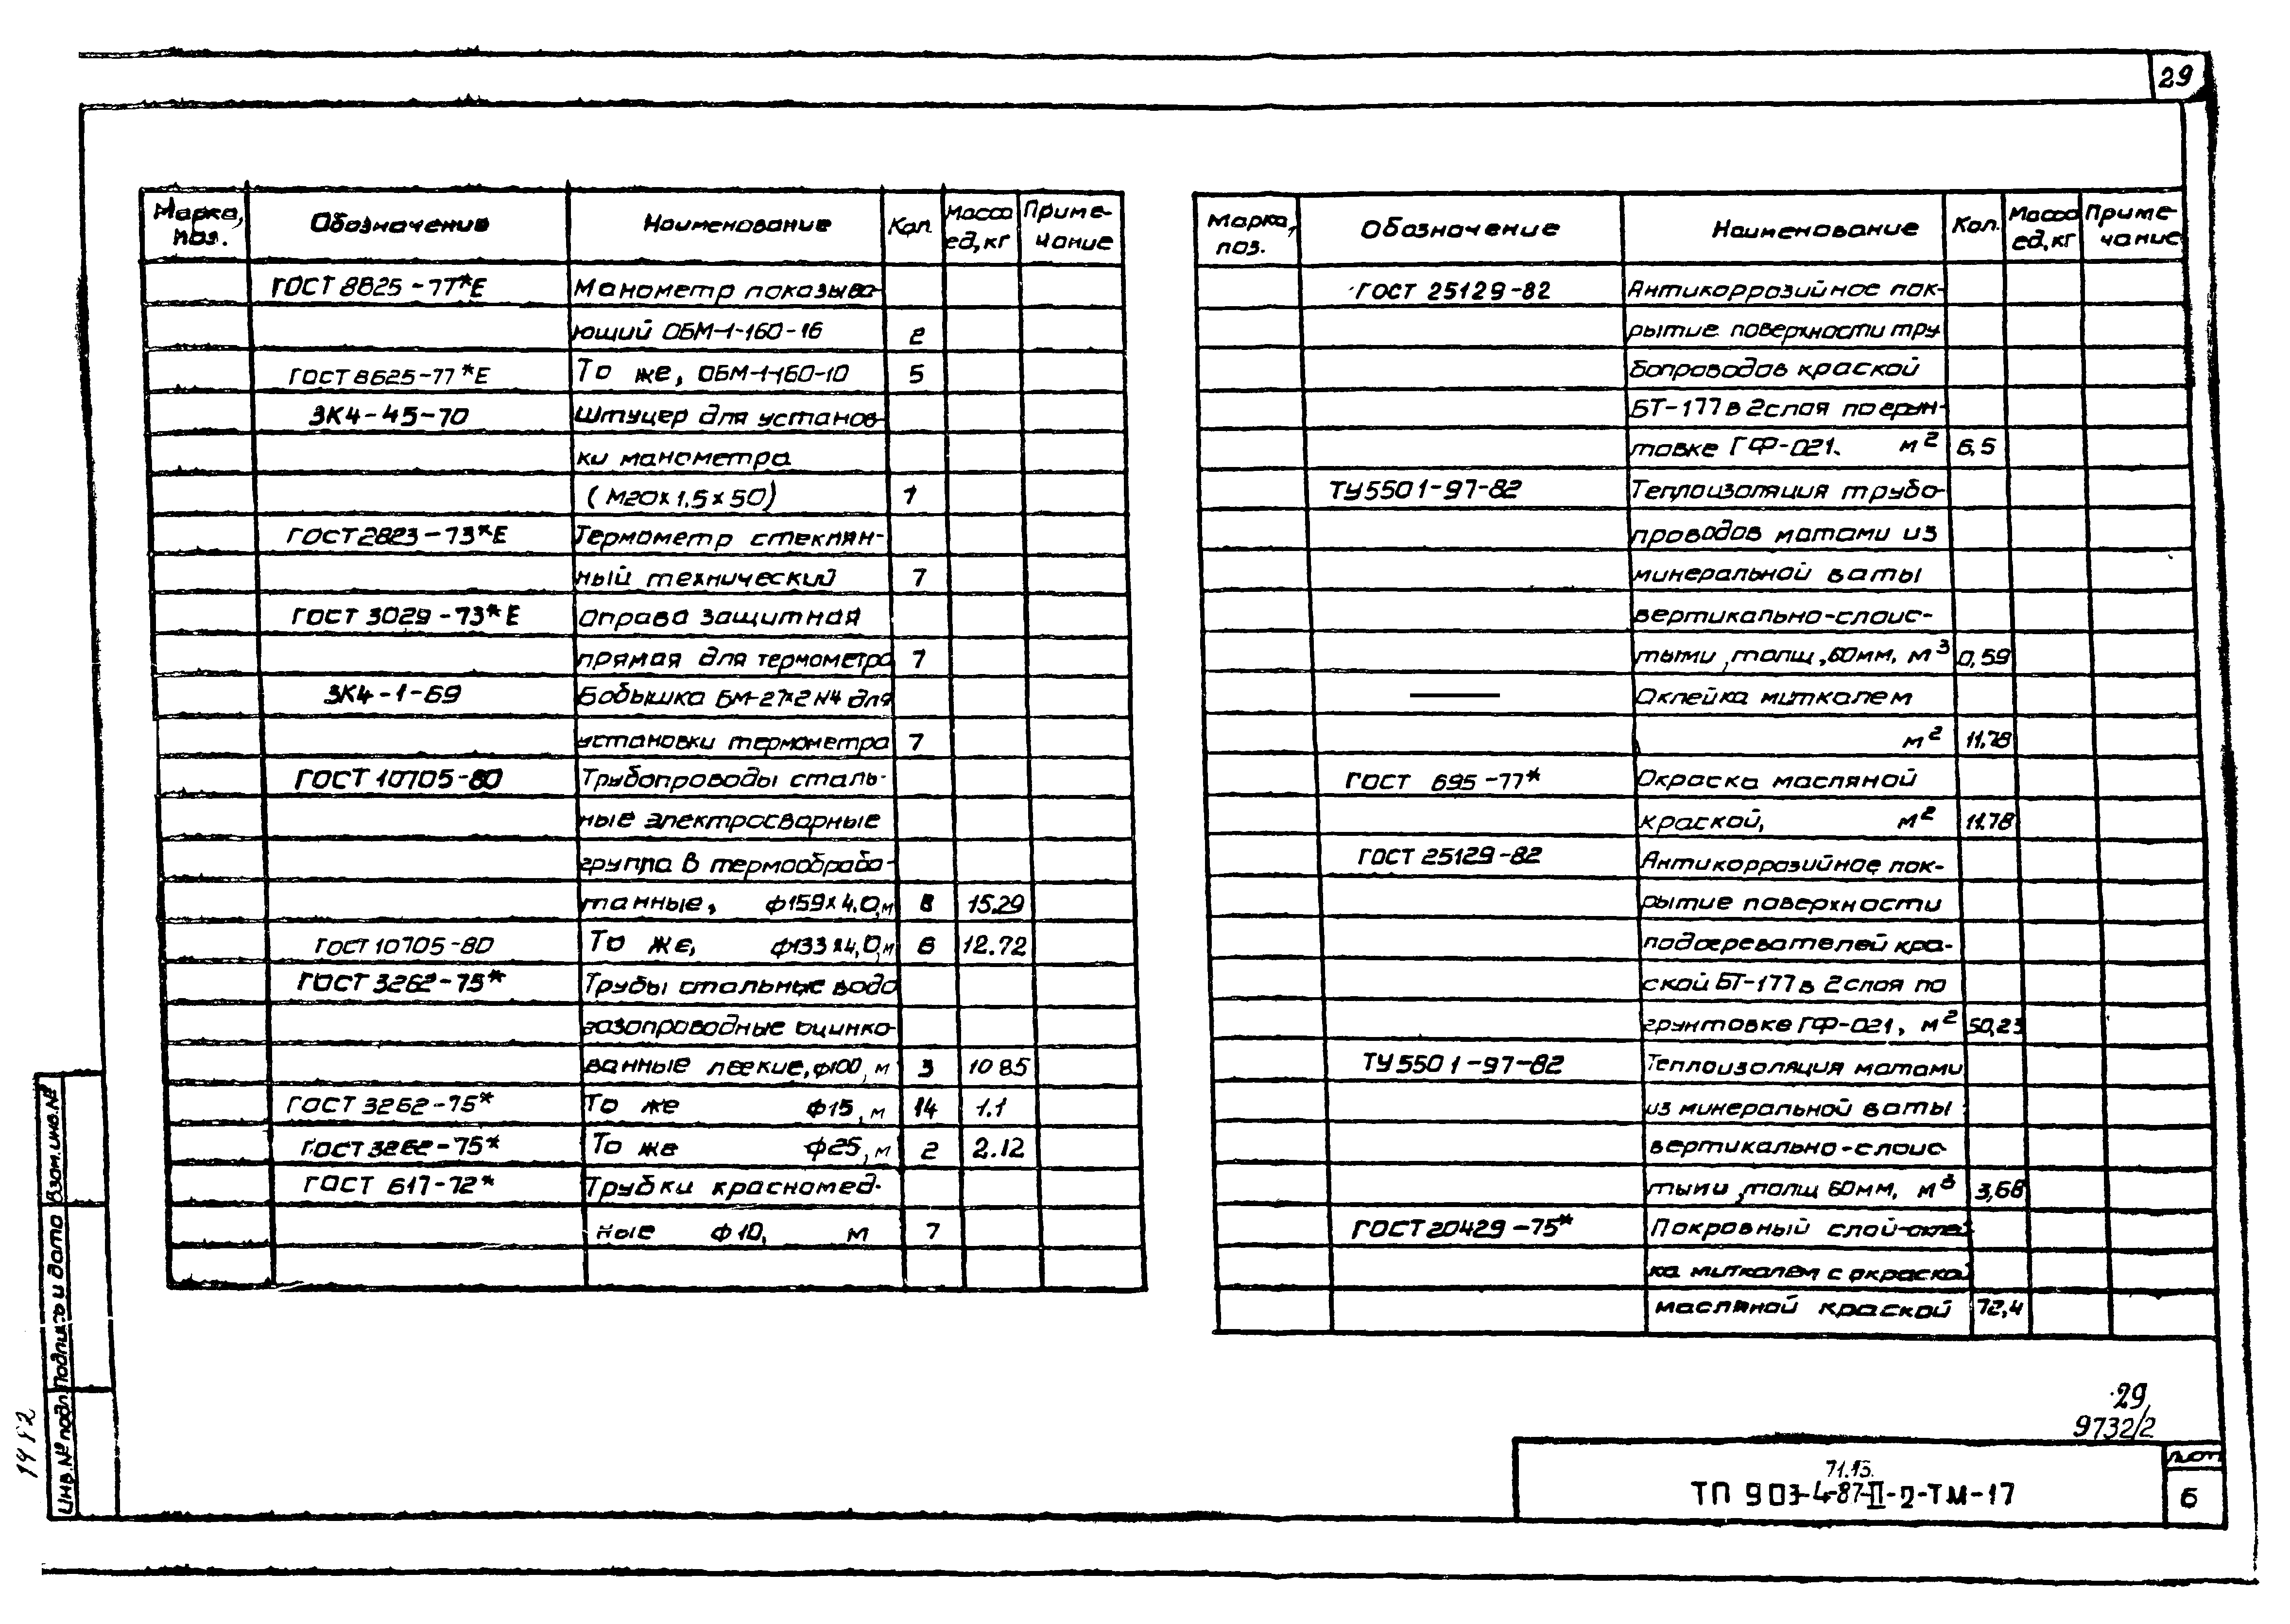 29
Марка, поз. Обозначение Наименование Кол. Масса ед,кг Приме-чание
ГОСТ 8825-77*Е Манометр показыва-
ющий ОБМ-1-160-16 2
ГОСТ 8625-77*Е То же, ОБМ-1-160-10 5
ЗК4-45-70 Штуцер для установ-
ки манометра
(М20х1,5х50) 7
ГОСТ 2823-73*Е Термометр стеклян-
ный технический 7
ГОСТ 3029-73*Е Оправа защитная
прямая для термометра 7
ЗК4-1-69 Бобышка БМ-27х2 N4 для
установки термометра 7
ГОСТ 10705-80 Трубопроводы сталь-
ные электросварные
группа В термообрабо-
танные, ф159х4,0,м 15.29
ГОСТ 10705-80 То же, ф133х4,0,м 6 12.72
ГОСТ 3262-75* Трубы стальные водо
газопроводные оцинко-
ванные легкие, ф100, м 3 10 85
ГОСТ 3262-75* То же ф15, м 14 1.1
ГОСТ 3262-75* То же ф25, м 2 2.12
ГОСТ 617-72* Трубки красномед-
ные ф10, м 7
Марка, поз. Обозначение Наименование Кол. Масса ед,кг Приме-чание
ГОСТ 25129-82 Антикоррозийное пок-
рытие поверхности тру
бопроводов краской
БТ-177 в 2 слоя по грун-
товке ГФ-021. м² 6,5
ТУ 5501-97-82 Теплоизоляция трубо-
проводов матами из
минеральной ваты
вертикально-слоис-
тыми, толщ. 60мм, м³ 0,59
— Оклейка миткалем
м² 11.78
ГОСТ 695-77* Окраска масляной
краской, м² 11.78
ГОСТ 25129-82 Антикоррозийное пок-
рытие поверхности
подогревателей кра-
ской БТ-177 в 2 слоя по
грунтовке ГФ-021, м² 50,23
ТУ 5501-97-82 Теплоизоляция матами
из минеральной ваты
вертикально-слоис-
тыми, толщ 60мм, м³ 3,68
ГОСТ 20429-75* Покровный слой-оклей
ка миткалем с окраской
масляной краской 72,4
29
9732/2
71.13.
ТП 903-4-87-II-2-ТМ-17
Лист
6
Взам.инв.№
Подпись и дата
Инв.№ подл